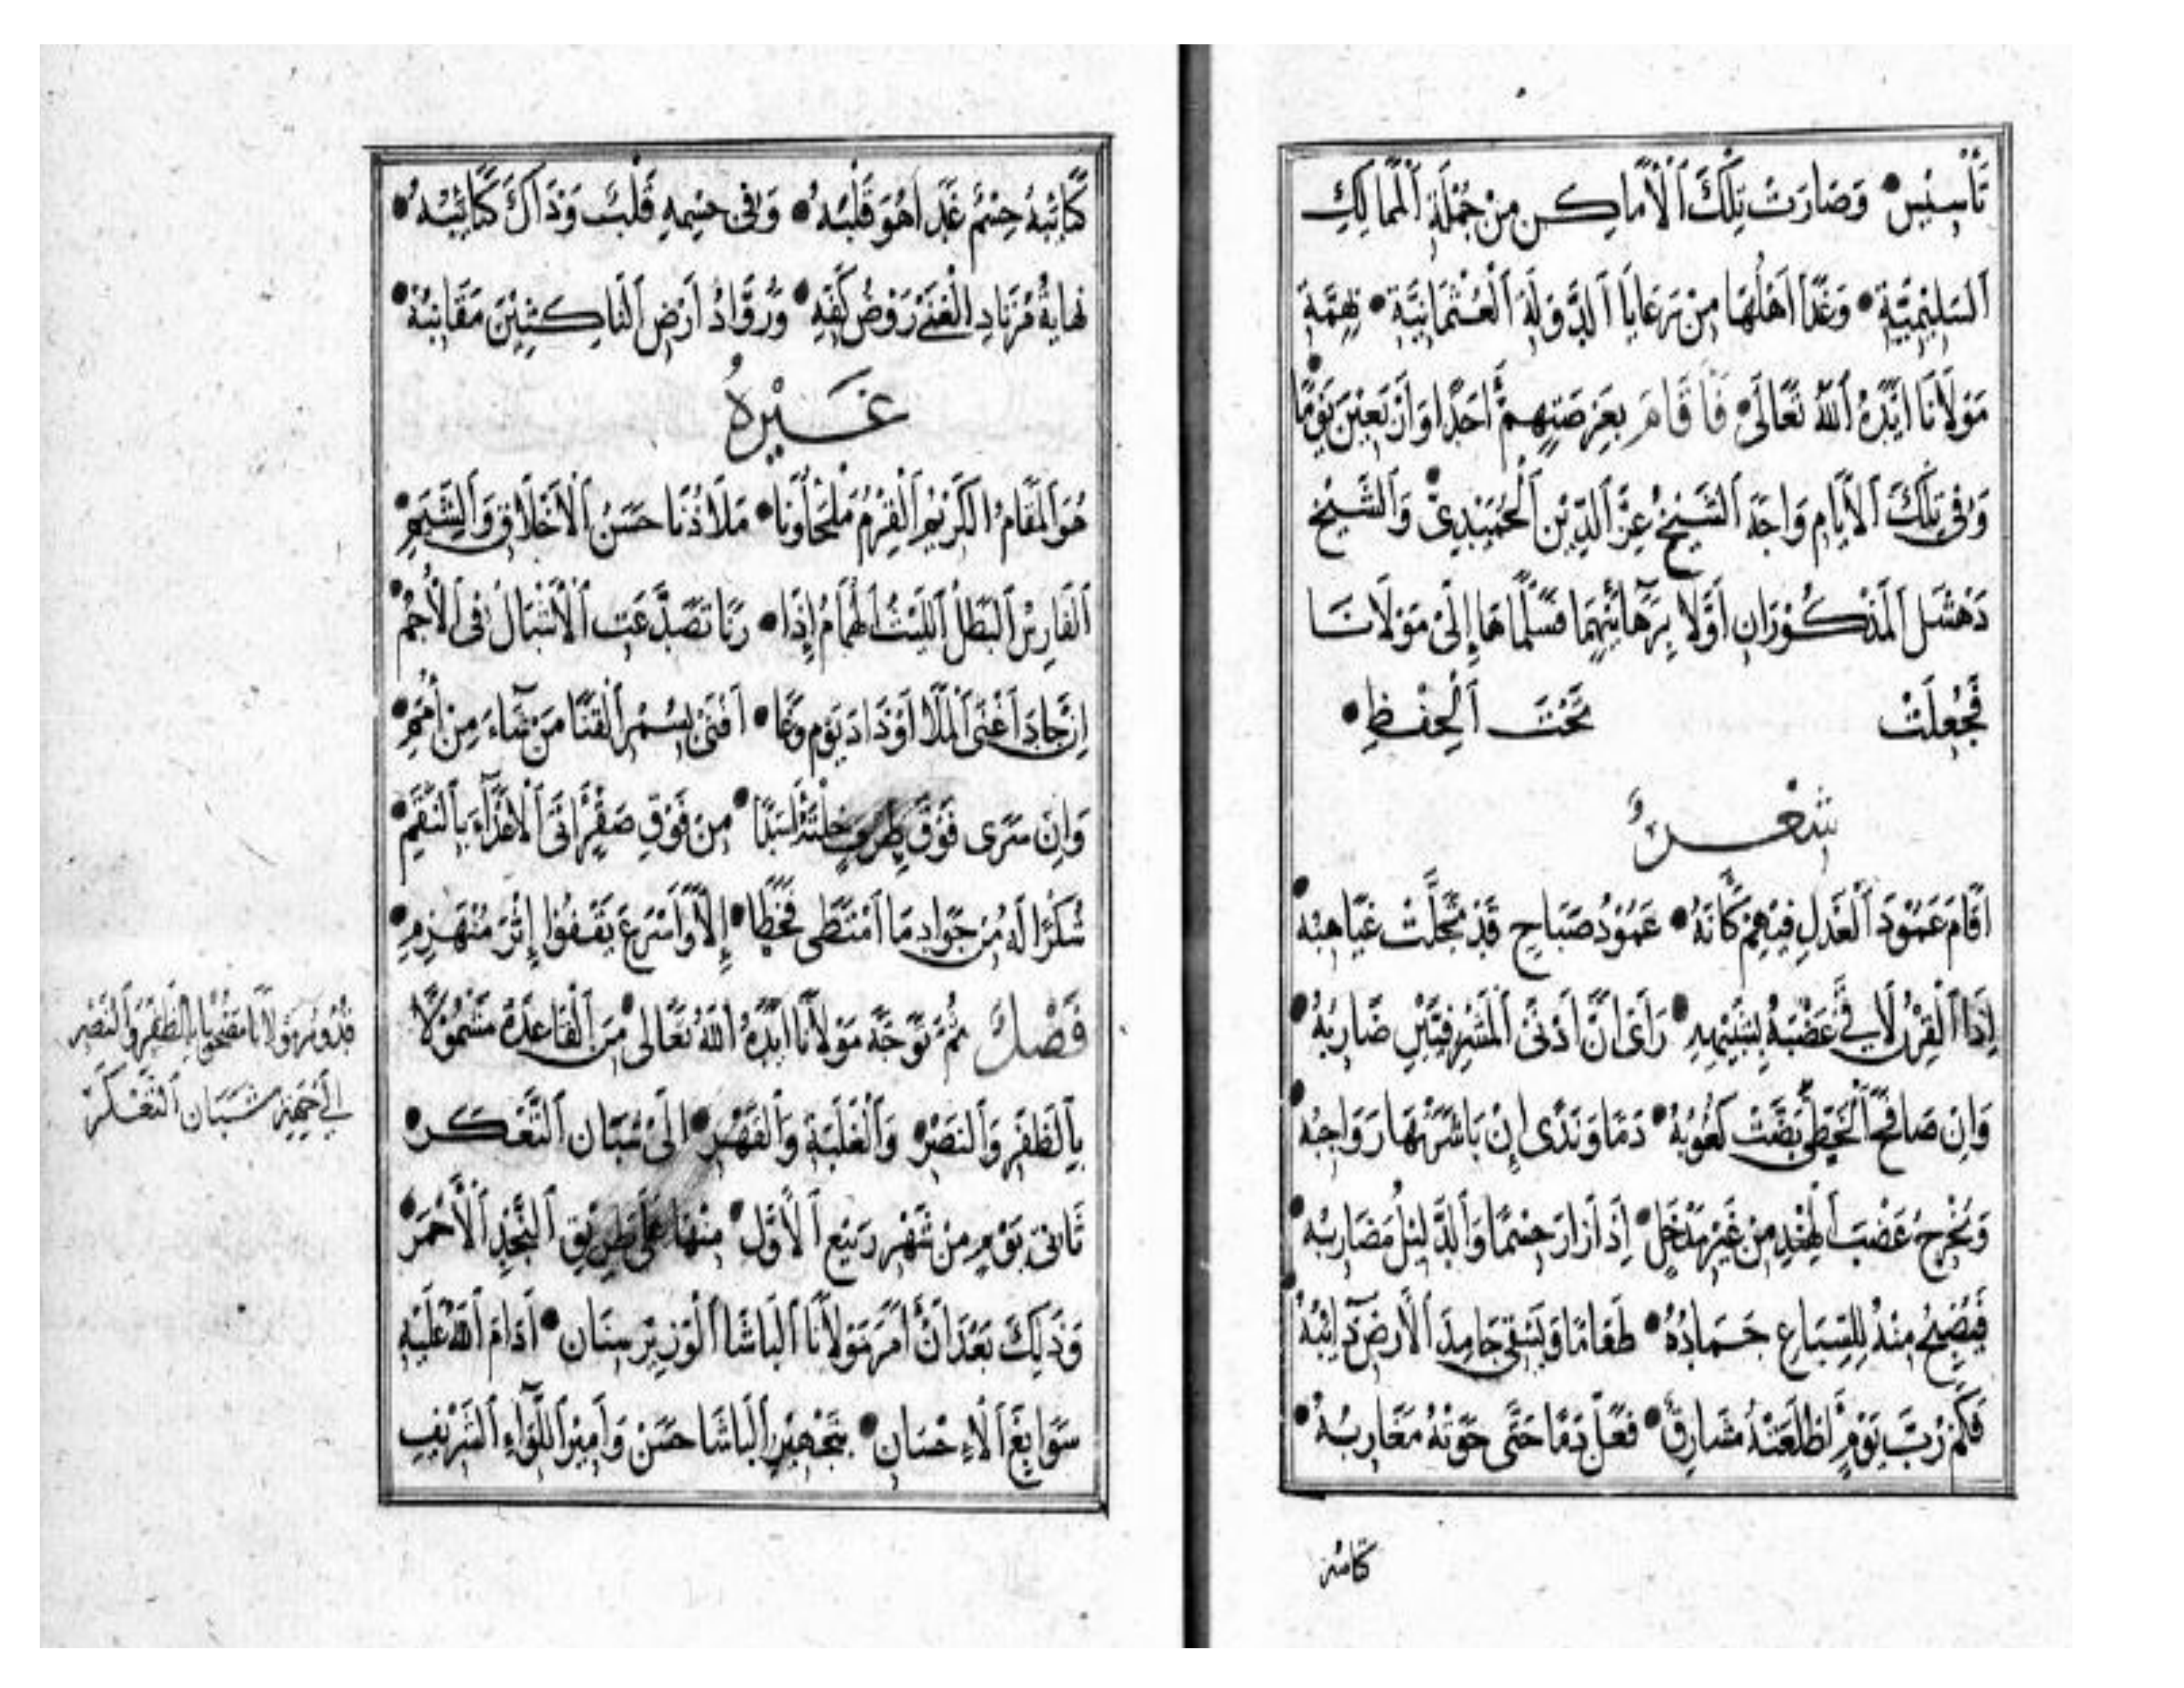 تَأْسِيْسٍ • وَصَارَتْ تِلْكَ اَلْاَمَاكِن مِنْ جُمْلَةِ اَلْمَمَالِكِ
اَلسَّلِيْمِيَّةِ • وَغَدَا اَهْلُهَا مِنْ رَعَايَا اَلدَّوْلَةِ اَلْعُثْمَانِيَّةِ • بِهِمَّةِ
مَوْلَانَا اَيَّدَهُ اَللّٰهُ تَعَالَى • فَاَقَامَ بِعَرْصَتِهِمْ اَحَدًا وَاَرْبَعِيْنَ يَوْمًا •
وَفِي تِلْكَ اَلْاَيَّامِ وَاجَهَ اَلشَّيْخُ عِزُّ اَلدِّيْنِ اَلْحُمَيْدِيُّ • وَاَلشَّيْخُ
دَهْشَل اَلْمَذْكُوْرَانِ اَوَّلًا بِرَهَائِنِهِمَا فَسَلَّمَاهَا إِلَى مَوْلَانَا
فَجُعِلَتْ تَحْتَ اَلْحِفْظِ •
شعر
اَقَامَ عَمُوْدَ اَلْعَدْلِ فِيْهِمْ كَاَنَّهُ • عَمُوْدُ صَبَاحٍ قَدْ تَجَلَّتْ غَيَاهِبُهْ •
إِذَا اَلْقِرْنُ لَاقَى عَضْبَهُ بِيَمِيْنِهِ • رَاَى اَنَّ اَدْنَى اَلْمَشْرَفِيَّيْنِ ضَارِبُهْ •
وَاِنْ صَافَحَ اَلْخَطِّيَّ بَضَّتْ كُعُوْبُهُ • دَمًا وَنَدًى اِنْ بَاشَرَتْهَا رَوَاجِبُهْ •
وَيُخْرِجُ عَضْبَ اَلْهِنْدِ مِنْ غَيْرِ مَدْخَلٍ • اِذَا زَارَ جِسْمًا وَاَلدَّلِيْلُ مَضَارِبُهْ •
فَيُصْبِحُ مِنْهُ لِلسِّبَاعِ جَمَادُهُ • طَعَامًا وَيَسْقِي جَامِدَ اَلْاَرْضِ ذَائِبُهْ •
فَكَمْ رُبَّ يَوْمٍ اَظْلَعَتْهُ مَشَارِقٌ • فَعَلَّ دَمًا حَتَّى حَوَتْهُ مَغَارِبُهْ •
كَتَائِبُهُ جِسْمٌ غَدَا هُوَ قَلْبُهُ • وَفِي جِسْمِهِ قَلْبٌ وَذَاكَ كَتَائِبُهْ •
نِهَايَةُ مُرْتَادِ اَلْغِنَى رَوْضُ كَفِّهِ • وَرُوَّادُ اَرْضِ اَلنَّاكِثِيْنَ مَقَانِبُهْ •
غَيْرُهُ
هُوَ اَلْمَقَامُ اَلْكَرِيْمُ اَلْقَرْمُ مَلْجَاؤُنَا • مَلَاذُنَا حَسَنُ اَلْاَخْلَاقِ وَاَلشِّيَمِ •
اَلْفَارِسُ اَلْبَطَلُ اَللَّيْثُ اَلْهُمَامُ إِذَا • رَنَا تَصَدَّعَتِ اَلْاَشْبَالُ فِي اَلْاُجُمِ •
اِنْ جَادَ اَغْنَى اَلْمَلَا اَوْ ذَادَ يَوْمَ وَغًا • اَفْنَى بِسُمْرِ اَلْقَنَا مَنْ شَاءَ مِنْ اُمَمِ •
وَاِنْ سَرَى فَوْقَ طِرْفٍ خِلْتَهُ اَسَدًا • مِنْ فَوْقِ صَقْرٍ اَتَى اَلْاَعْدَاءَ بِاَلنِّقَمِ •
شُكْرًا لَهُ مِنْ جَوَادٍ مَا اَمْتَطَى فَخَطَا • إِلَّا وَاَسْرَعَ يَقْفُوْا إِثْرَ مُنْهَزِمِ •
فَصْلٌ ثُمَّ تَوَجَّهَ مَوْلَانَا اَيَّدَهُ اَللّٰهُ تَعَالَى • مِنَ اَلْقَاعِدَةِ مَشْمُوْلًا
بِاَلظَّفَرِ وَاَلنَّصْرِ • وَاَلْغَلَبَةِ وَاَلْقَهْرِ • اِلَى شَبَبَانِ اَلتَّعْكَرِ •
ثَانِي يَوْمٍ مِنْ شَهْرِ رَبِيْعِ اَلْاَوَّلِ • مِنْهَا عَلَى طَرِيْقِ اَلنَّجْدِ اَلْاَحْمَرِ •
وَذٰلِكَ بَعْدَ اَنْ اَمَرَ مَوْلَانَا اَلْبَاشَا اَلْوَزِيْرُ سِنَان • اَدَامَ اَللّٰهُ عَلَيْهِ
سَوَابِغَ اَلْاِحْسَانِ • بِتَجْهِيْزِ اَلْبَاشَا حَسَنْ وَاَمِيْرِ اَللِّوَاءِ اَلشَّرِيْفِ
قدوم مولانا مصحوبا بالظفر والنصر
الى جهة شببان التعكر
كتائبه